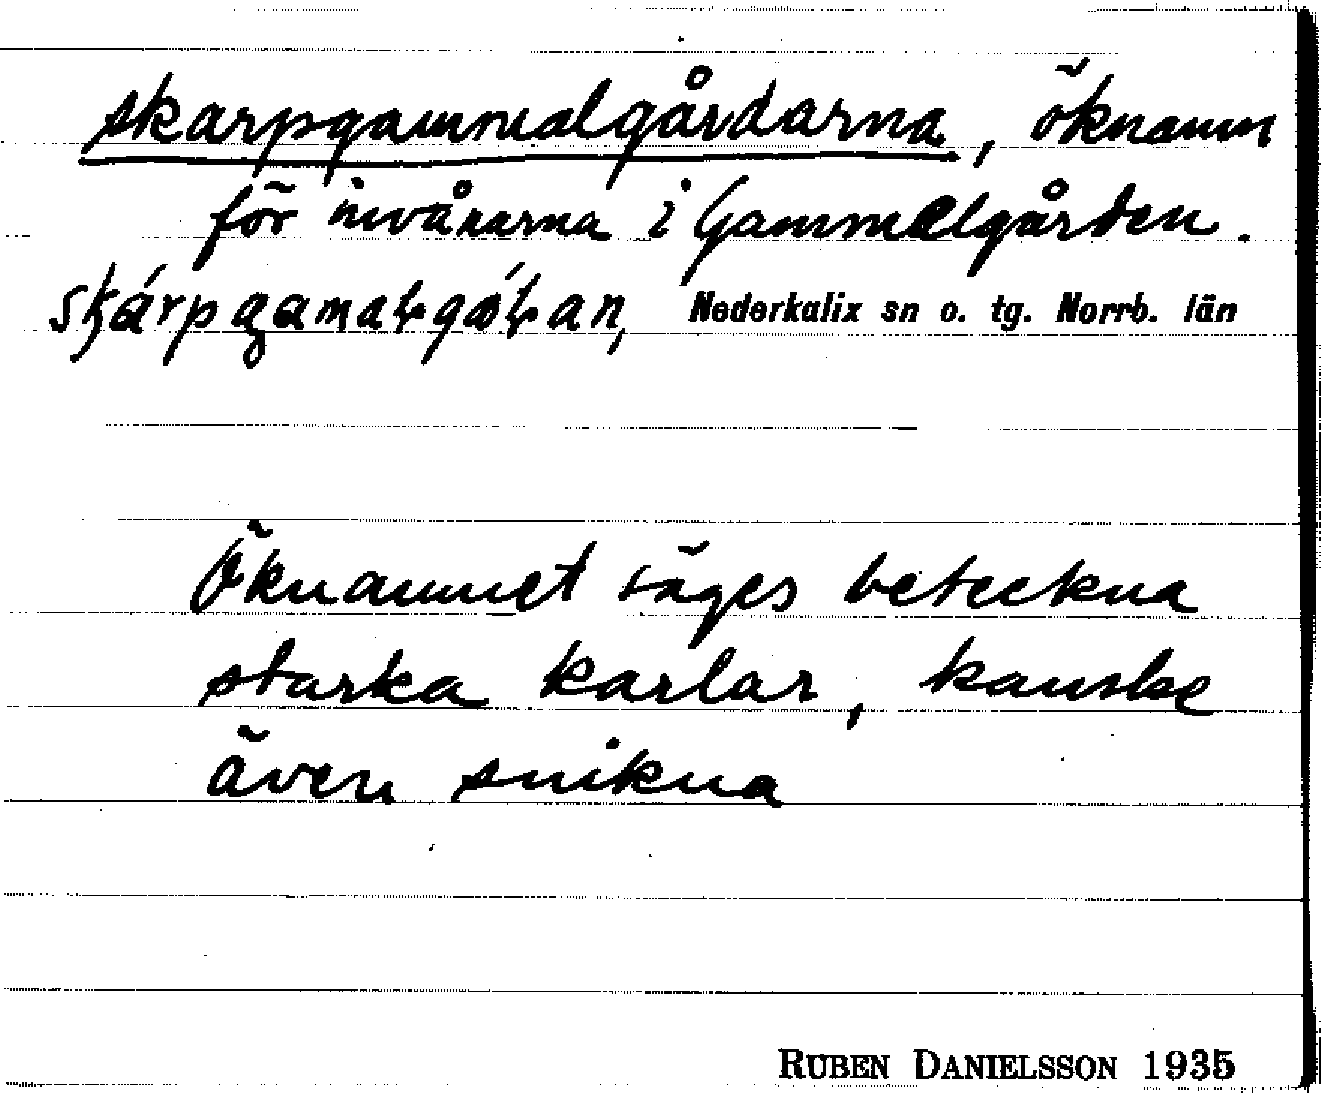 skarpgammalgårdarna, öknamn
för invånarna i Gammelgården.
Nederkalix sn o. tg. Norrb. län
Öknamnet säges beteckna
starka karlar, kanske
även snikna
RUBEN DANIELSSON 1935